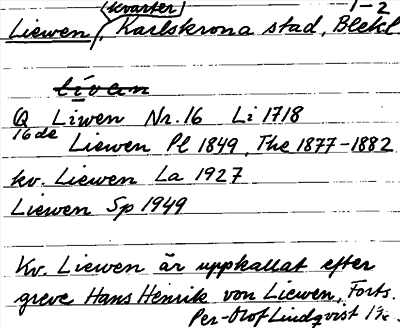 (kvarter) 1-2
Liewen, Karlskrona stad, Blekl
livan
Q Liwen Nr. 16 Li 1718
16de Liewen Pl 1849, The 1877-1882
kv. Liewen La 1927
Liewen Sp 1949
Kv. Liewen är uppkallat efter
greve Hans Henrik von Liewen. Forts.
Per-Olof Lindqvist